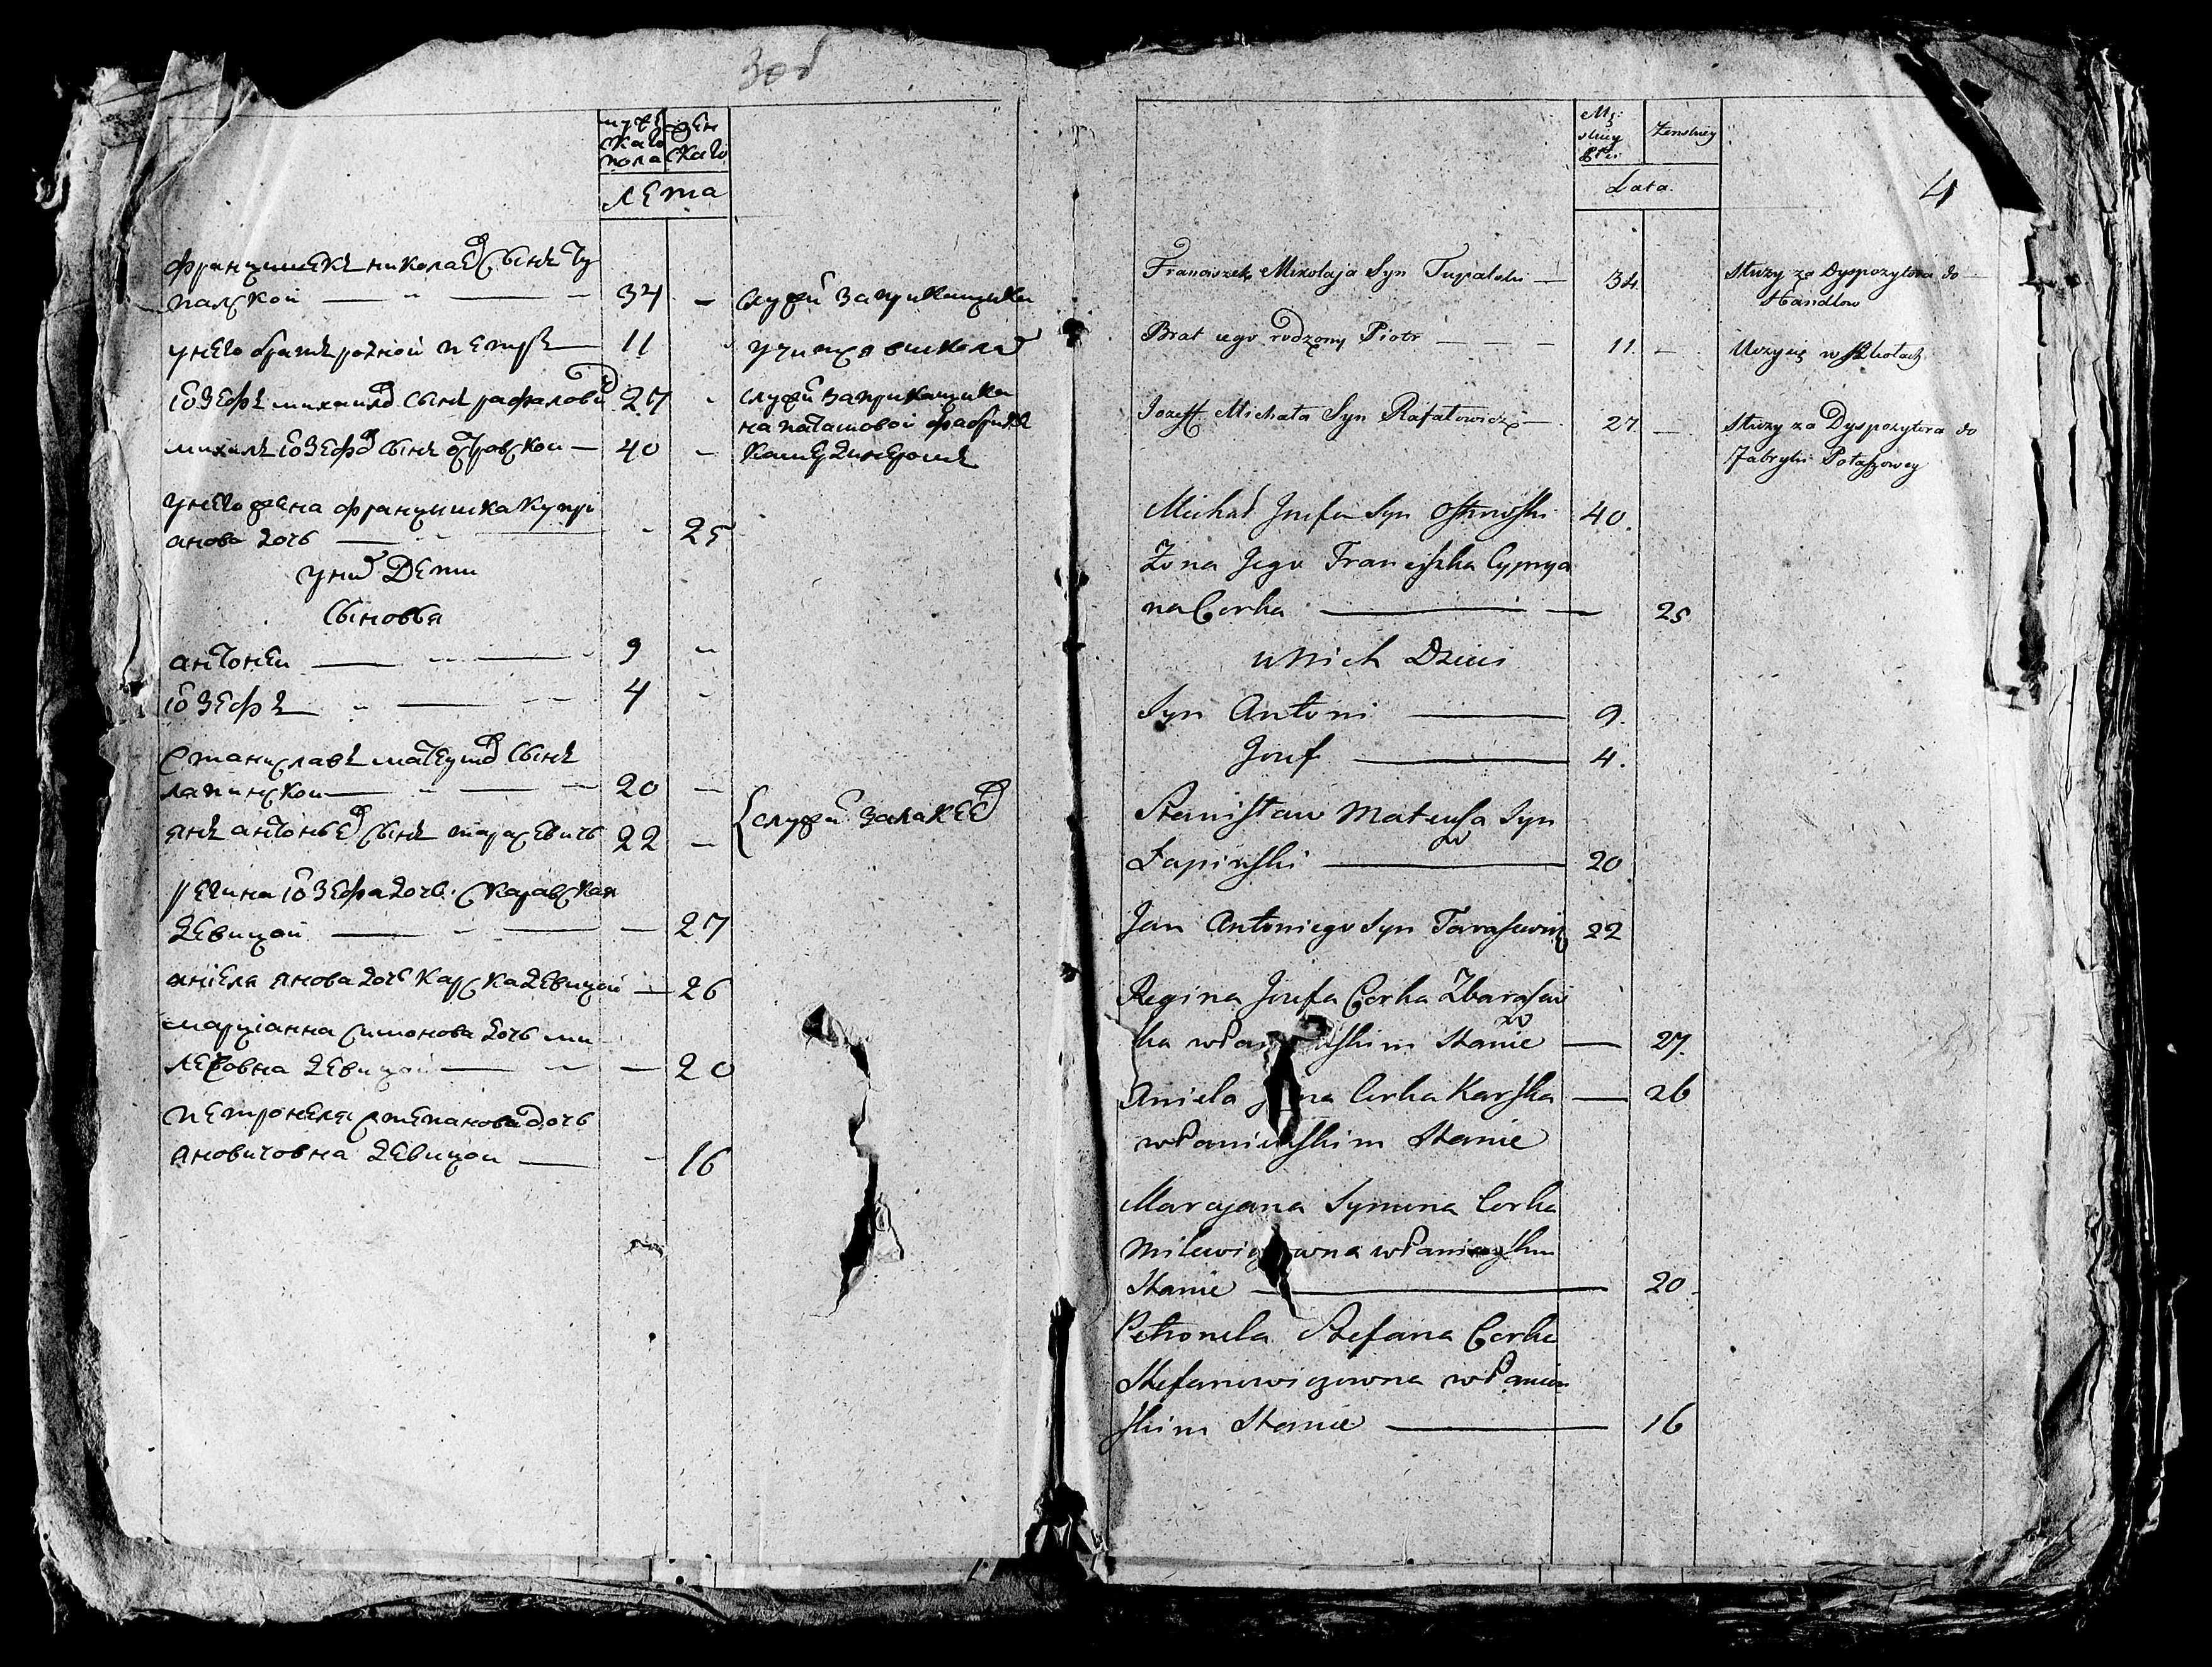 3об
муже
скаго
пола
жен
скаго
лета
францишекъ николае сынъ ту
палской — 34 —
служи за прикащика
унего братъ родной петръ — 11
учитца вшколе
іозефъ михаила сынъ рафалови 27
служи заприкащика
на паташовой фабрике
михалъ іозефа сынъ островской — 40 —
унего жена францишка купри
анова дочь — 25
уних Дети
Сыновья
антоней — 9
іозефъ — 4
станиславъ матеуша сынъ
лапинской — 20 —
янъ антонье сынъ тарасевичь 22 —
служи залаке
регина іозефа дочь
девицой — 27
аніеля янова дочь карска девицой — 26
марціанна симонова дочь ми
девицой — 20
петронеля степанова дочь
яновичовна девицой — 16
4
Mę:
skiey
Płci
Żenskiey
Lata.
Franciszek Mikołaja Syn Tupalski — 34.
Służy za Dyspozytora do
Handlow
Brat iego rodzony Piotr — — — 11. —
Uczy się w Szkołach
Jozeff Michała Syn Rafałowicz — 27. —
Służy za Dyspozytora do
Fabryki Potaszowey
Michał Jozefa Syn Ostrowski 40.
Żona Jego Franciszka Cyprya
na Corka — 25
u Nich Dzieci
Syn Antoni — 9.
Jozef — 4.
Stanisław Mateusza Syn
Łapinski — 20
Jan Antoniego Syn Tarasewicz 22
Regina Jozefa Corka Zbarasew
ska w Stanie — 27.
Aniela Corka Karska — 26
w Panienskim Stanie
Marcyana Symona Corka
w Panienskim
Stanie — 20
Petronela Stefana Corka
Stefanowiczowna w Panien
skim Stanie — 16